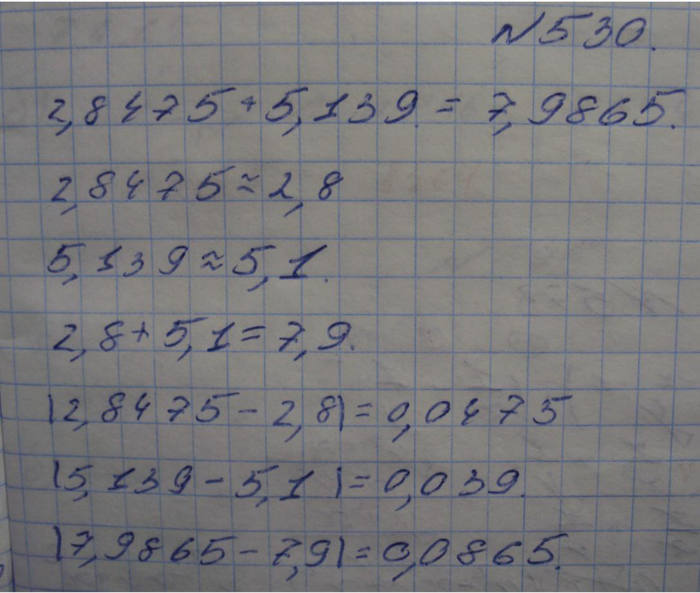 N530.
2,8475+5,139.=7,9865.
2,8475≈2,8
5,139≈5,1.
2,8+5,1=7,9.
|2,8475-2,8|=0,0475
|5,139-5,1|=0,039.
|7,9865-7,9|=0,0865.